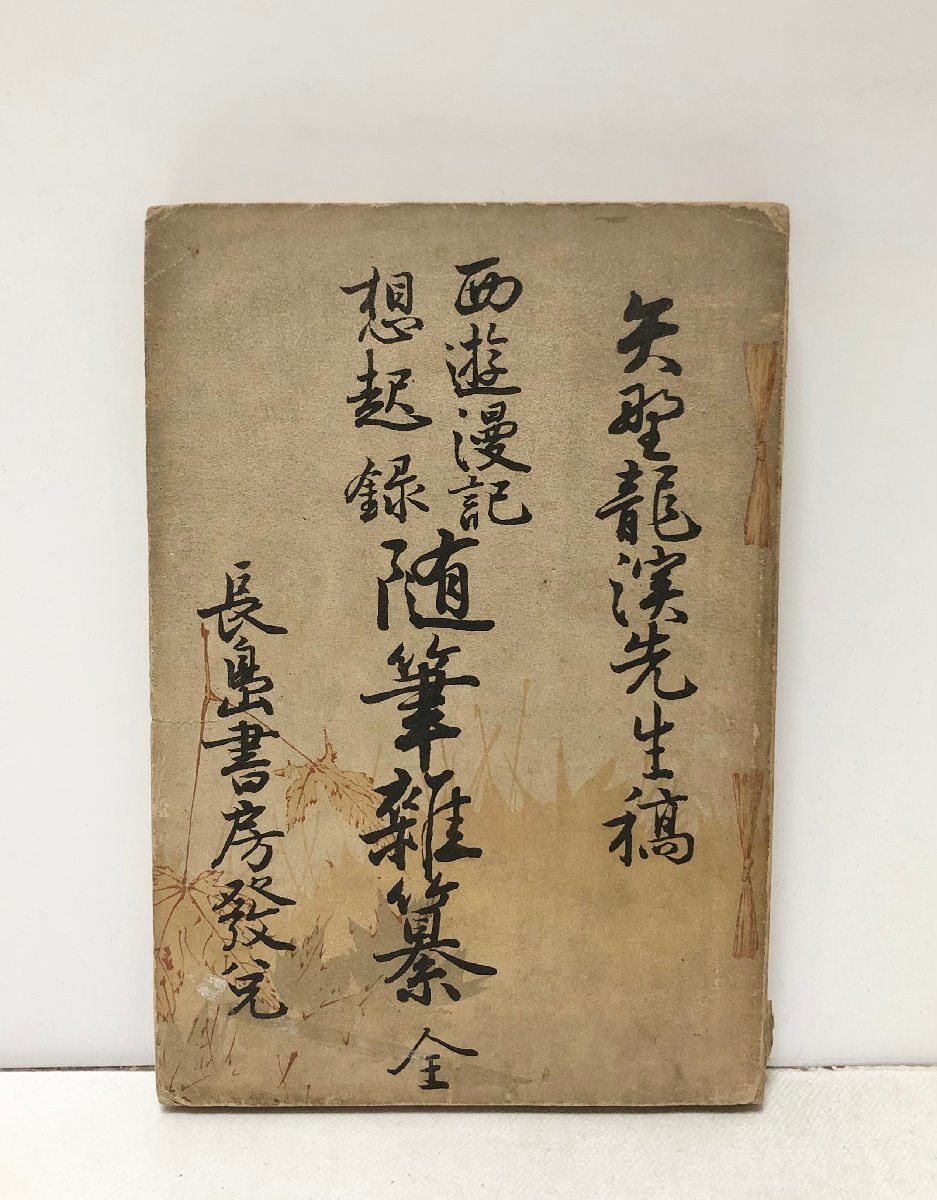 矢野龍溪先生稿
西遊漫記
想起録
随筆雜纂 全
長島書房發兌